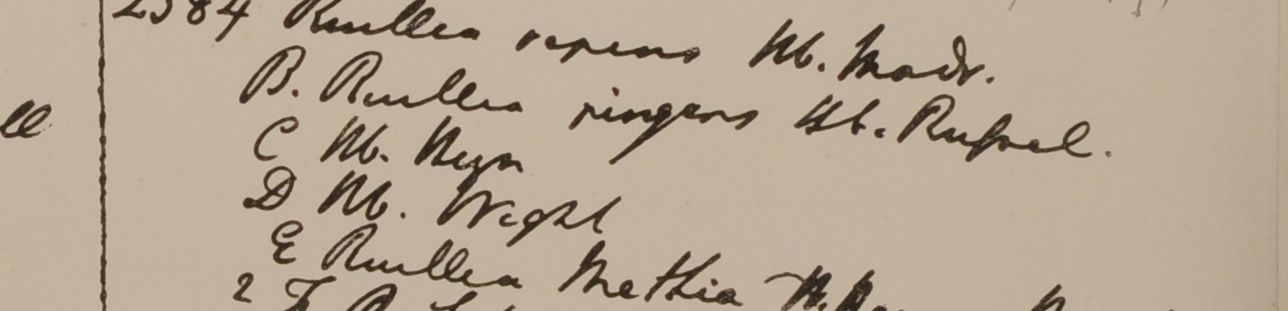 2384 Ruellia repens Hb. Madr.
B. Ruellia ringens Hb. Russel.
C Hb. Heyn
D Hb. Wight
E Ruellia